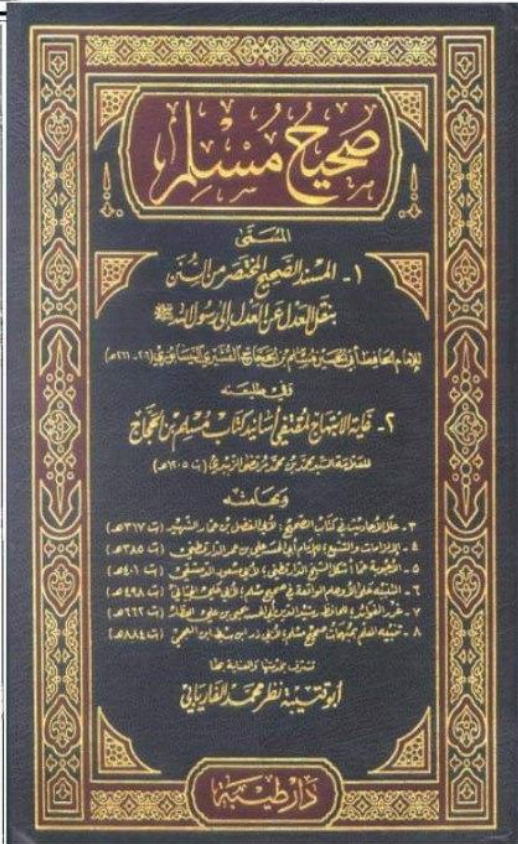 صحيح مسلم
المسمى
١ - المسند الصحيح المختصر من السنن
بنقل العدل عن العدل إلى رسول الله ﷺ
للإمام الحافظ أبي الحسين مسلم بن الحجاج القشيري النيسابوري (٢٠٦ - ٢٦١ هـ)
وفي طليعته
٢ - غاية الابتهاج لمقتفي أسانيد كتاب مسلم بن الحجاج
للعلامة السيد محمد بن محمد مرتضى الزبيدي (ت ١٢٠٥ هـ)
وبهامشه
٣ - علل الأحاديث في كتاب الصحيح، لأبي الفضل بن عمار الشهيد (ت ٣١٧ هـ)
٤ - الإلزامات والتتبع، للإمام أبي الحسن علي بن عمر الدارقطني (ت ٣٨٥ هـ)
٥ - الأجوبة عما أشكل الشيخ الدارقطني، لأبي مسعود الدمشقي (ت ٤٠١ هـ)
٦ - التنبيه على الأوهام الواقعة في صحيح مسلم، لأبي علي الجياني (ت ٤٩٨ هـ)
٧ - غرر الفوائد، للحافظ رشيد الدين أبو الحسين يحيى بن علي العطار (ت ٦٦٢ هـ)
٨ - تنبيه المعلم بمبهمات صحيح مسلم، لأبي ذر ابن سبط ابن العجمي (ت ٨٨٤ هـ)
تشرف بخدمتها والعناية بها
أبو قتيبة نظر محمد الفاريابي
دار طيبة